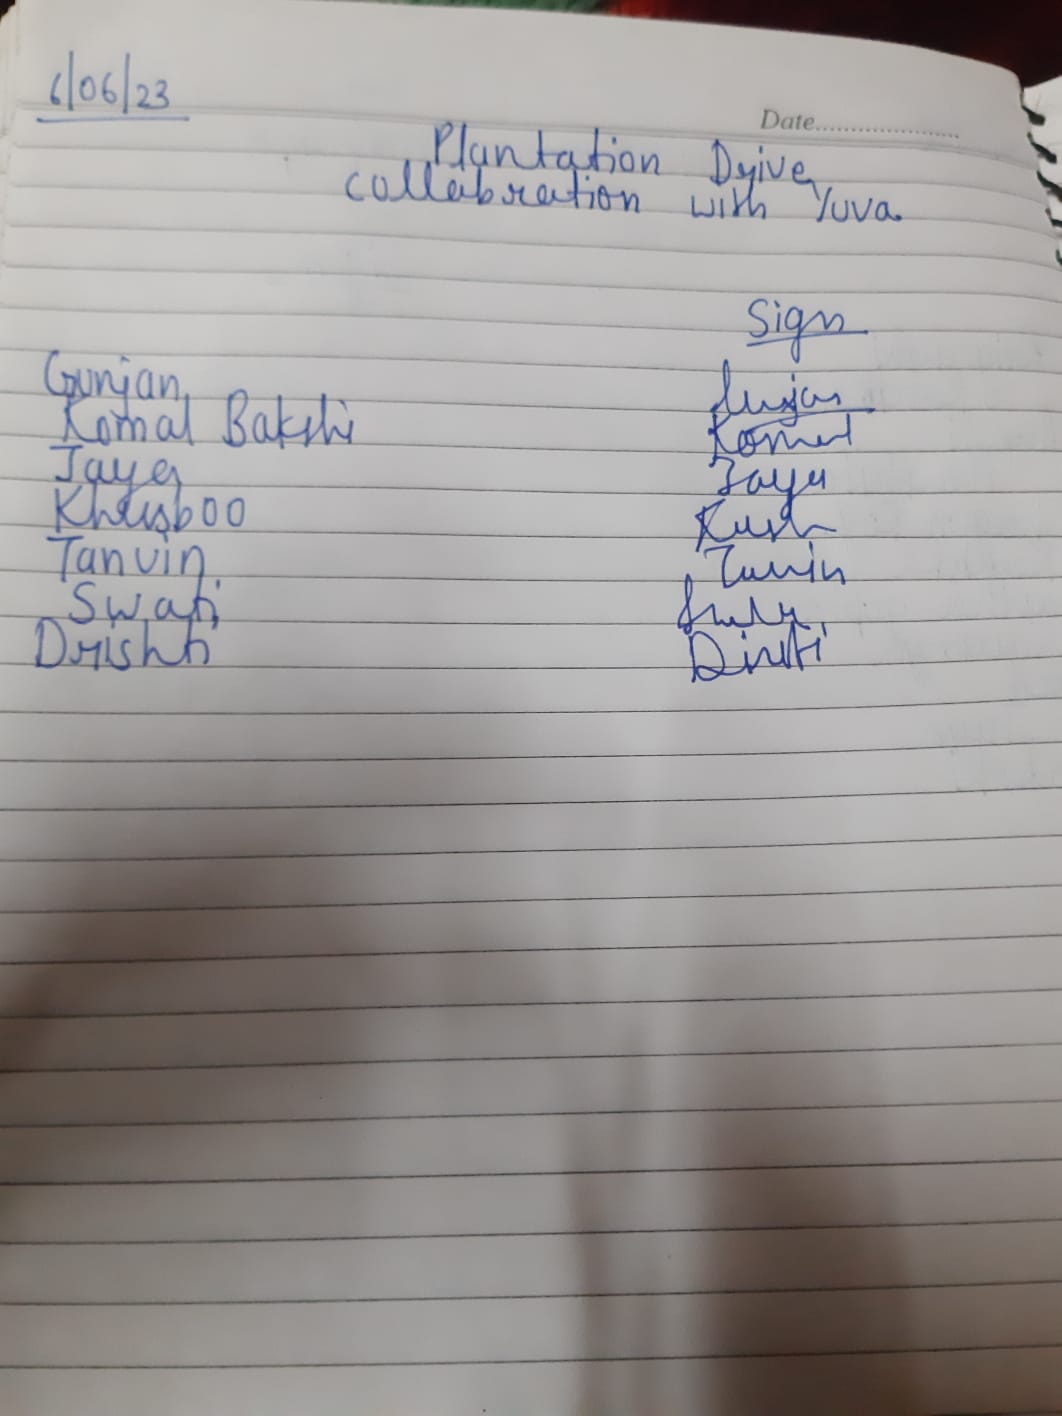 6/06/23
Date....................
Plantation Drive
collabration with Yuva
Sign
Gunjan Gunjan
Komal Bakshi Komal
Jaya Jaya
Khusboo Kush
Tanvin Tanvin
Swati
Drishti